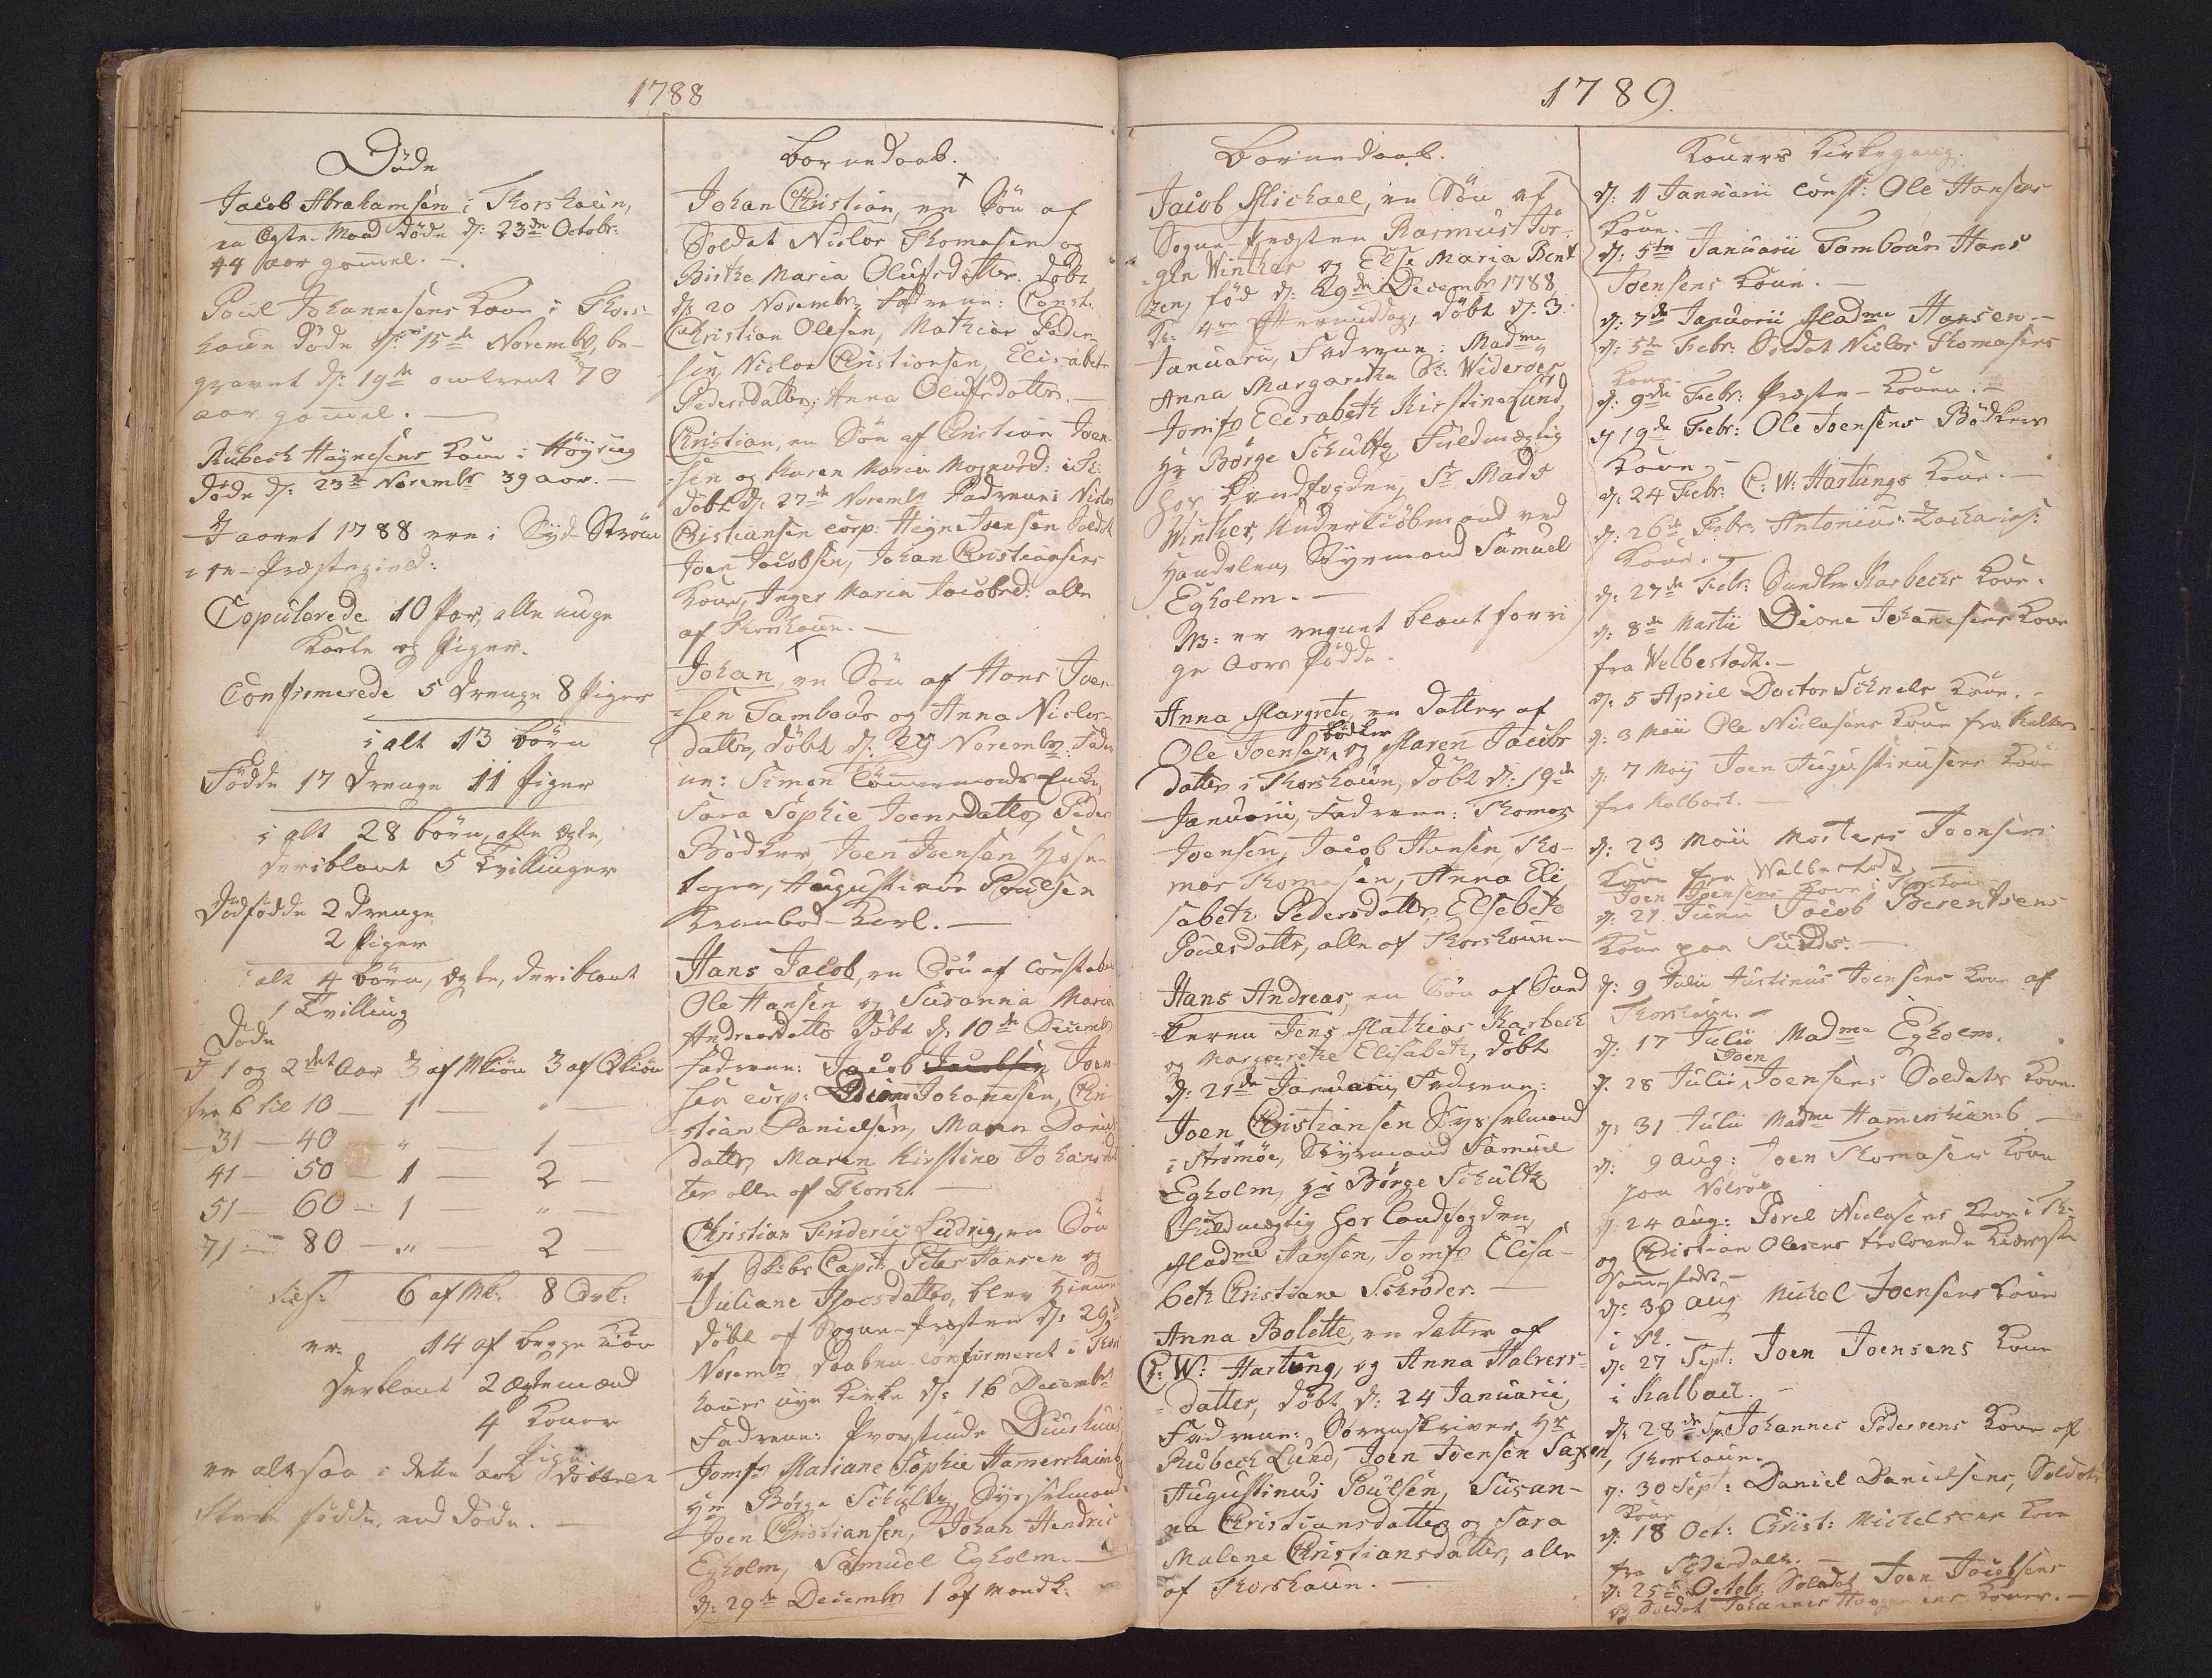 1788
Döde
Jacob Abrahamsen i Thorshaun,
en Egte-Mand döde d: 23de Octobr:
44 aar gamel. -
Poul Johannesens Kone i Thors-
haun döde d: 15de Novembr, be-
gravet d: 19de omtrent 70
aar gamel. -
Rubech Haynesens Kone i Höyvig
döde d: 23de Novembr 39 aar. -
I aaret 1788 ere i Syd Ström-
öe-Præstegield:
Copulerede 10 Par, alle unge
Karle og Piger.
Confirmerede 5 Drenge 8 Piger
i alt 13 börn
Födde 17 Drenge 11 Piger
i alt 28 börn, alle ægte,
deriblant 5 Tvillinger
Dödfödde 2 Drenge
2 Piger
i alt 4 börn, ægte, deriblant
1 Tvilling
Döde
I 1 og 2det Aar 3 af Mkiön 3 af Qkiön
fra 6 til 10 - 1 - " -
31 - 40 " - 1 -
41 - 50 - 1 - 2 -
51 - 60 - 1 - " -
71 - 80 - " - 2 -
6 af Mk: 8 Qvk:
er 14 af begge Kiön
deriblant 2 Ægtemænd
4 Koner
1 Pige
er altsaa i dette aar dobbelt
födde, end döde. -
Bornedaab.
Johan Christian, en Sön af
Soldat Niclas Thomasen og
Birthe Maria Olufsdatter döbt
d: 20 Novembr, Fadrene: Const.
Christian Olesen, Mathias Peder-
sen, Niclas Christiansen, Elisabeth
Pedersdatter, Anna Olufsdatter. -
Christian, en Sön af Christian Joen-
sen og Karen Maria Magnusd: i Th:
döbt d: 27de Novembr Fadrene: Niclas
Christiansen corp: Heyne Joensen Soldat
Joen Jacobsen, Johan Christiansens
Kone, Inger Maria Jacobsd: alle
af Thorshaun. -
Johan, en Sön af Hans Joen-
sen Tambour og Anna Niclas-
datter, döbt d: 29 Novembr. Fadre-
ne: Simon Tömermands Enke,
Sara Sophie Joensdatter, Peder
Bödker, Joen Joensen Hose-
tager, Augustinus Poulsen
Krambod-Karl. -
Hans Jacob, en Sön af Constabel
Ole Hansen og Susanna Maria
Andreasdatter döbt d: 10de Decembr
Fadrene: Jacob Jacobsen Joen-
sen corp: Dione Johanesen, Chri-
stian Danielsen, Maren Daniels-
datter, Maren Kirstine Johansdat-
ter alle af Thorsh. -
Christian Frideric Ludvig, en Sön
af Skibs Capit: Peter Hansen og
Juliane Isacsdatter, blev hiemme
döbt af Sogne-Præsten d: 29de
Novembr, daaben confirmeret i Thors
hauns nye Kirke d: 16 Decembr
Fadrene: Provstinde
Jomfr Mariane Sophie Hamershaimb,
Hr Börge Schultz, Sysselmand
Joen Christiansen, Johan Hendric
Egholm, Samuel Egholm. -
d: 29de Decembr 1 af Mandk:
1789.
Bornedaab.
Jacob Michael, en Sön af
Sogne-Præsten Rasmus Jör-
gen Winther og Else Maria Bent
zen, föd d: 29de Decembr 1788
Kl: 4re Eftermiddag, döbt d: 3
Januarii, Fadrene: Madme
Anna Margaretha Sl: Wideröes
Jomfr Elisabeth Kirstine Lund,
Hr Börge Schultz, Fuldmægtig
hos Landfogden, Sr Mads
Winther, Underkiöbmand ved
Handelen, Styrmand Samuel
Egholm. -
NB: er regnet blant forri
ge Aars födde.
Anna Margrete, en datter af
Ole Joensen bödker og Maren Jacobs
datter i Thorshaun, döbt d: 19de
Januarii, Fadrene: Thomas
Joensen, Jacob Hansen, Tho-
mas Thomasen, Anna Eli
sabeth Pedersdatter, Elsebeth
Poulsdatter, alle af Thorshaun -
Hans Andreas, en Sön af Snd
keren Jens Mathias Karbech
og Margarethe Elisabeth, döbt
d: 21de Januarii, Fadrene:
Joen Christiansen Sysselmand
i Strömöe, Styrmand Samuel
Egholm, Hr Börge Schultz
Fuldmægtig hos Landfogden,
Madme Hansen, Jomfr Elisa-
beth Christiane Schröder. -
Anna Bolette, en datter af
C: W: Hartung, og Anna Halvers-
datter, döbt d: 24 Januarii,
Fadrene: Sorenskriver Hr
Rubech Lund, Joen Joensen Saxen,
Augustinus Poulsen, Susan-
na Christiansdatter og Sara
Malene Christiansdatter, alle
af Thorshaun. -
Koners Kirkegang.
d: 1 Januarii Const: Ole Hansens
Kone.
d: 5te Januarii Tambour Hans
Joensens Kone. -
d: 7de Januarii Madme Hansen. -
d: 5te Febr: Soldat Niclas Thomasens
Kone -
d: 9de Febr: Præste-Konen. -
d: 19de Febr: Ole Joensens Bödkers
Kone. -
d: 24 Febr: C: W: Hartungs Kone. -
d: 26de Febr: Antonius Zachariæs:
Kone. -
d: 27de Febr: Snedker Karbechs Kone.
d: 8de Martii Dione Johanesens Kone
fra Welbestadt. -
d: 5 April Doctor Schnels Kone. -
d: 3 Maii Ole Niclasens Kone fra
d: 7 Maij Joen Augustinusens Kone
fra Kalbach. -
d: 23 Maii Mortens Joensens
Kone fra Walbestadt
Joen Joensens Kone i Thorshaun
d: 21 Junii Jacob Berentsens
Kone paa
d: 9 Julii Justinus Joensens Kone af
Thorshaun. -
d: 17 Julii Madme Egholm.
d: 28 Julii Joen Joensens Soldats Kone.
d: 31 Julii Madme Hamershaimb. -
d: 9 Aug: Joen Thomasens Kone
paa Nolsöe
d: 24 Aug: Povel Niclasens Kone i Th:
og Christian Olesens trolovede Kiæreste
sammesteds. -
d: 30 Aug Michel Joensens Kone
i Th.
d: 27 Sept: Joen Joensens Kone
i Kalbach. -
d: 28de Johannes Pedersens Kone af
Thorshaun.
d: 30 Sept: Daniel Danielsens, Soldats
Kone
d: 18 Oct: Christ: Michelsens Kone
fra
d: 25de Octobr. Soldat Joen Jacobsens
og Soldat Johannes Koner. -